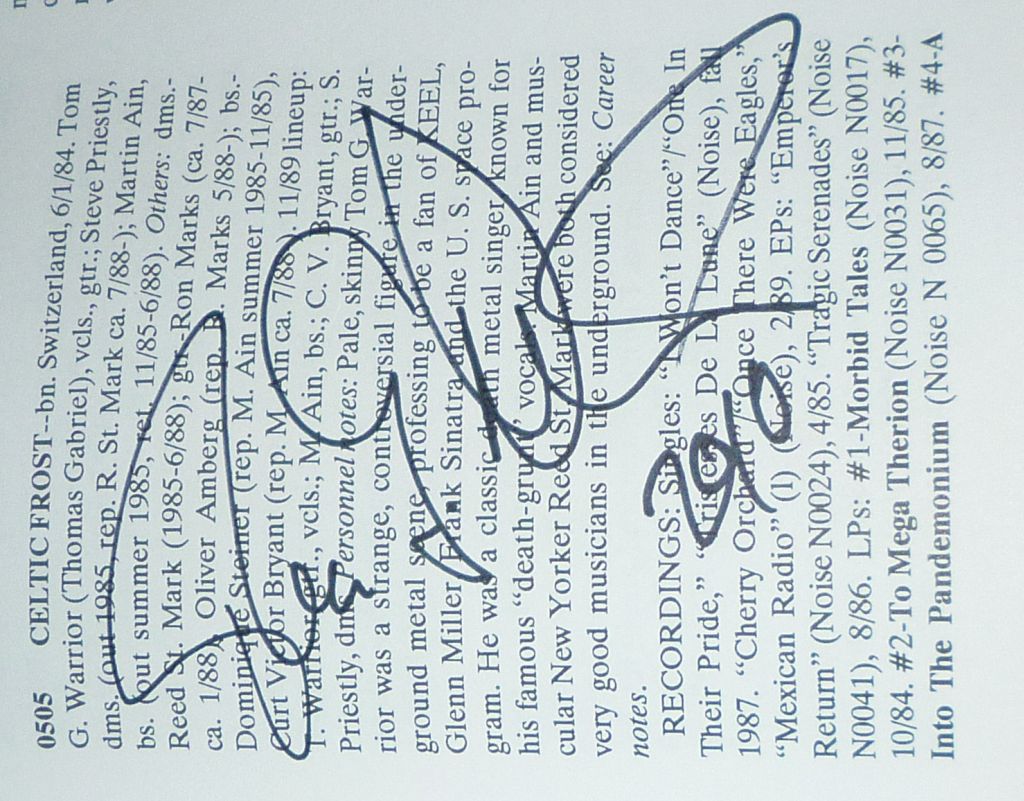 0505 CELTIC FROST--bn. Switzerland, 6/1/84. Tom
G. Warrior (Thomas Gabriel), vcls., gtr.; Steve Priestly,
dms. (out 1985, rep. R. St. Mark ca. 7/88-); Martin Ain,
bs. (out summer 1985, ret. 11/85-6/88). Others: dms.-
Reed St. Mark (1985-6/88); gtr.-Ron Marks (ca. 7/87-
ca. 1/88), Oliver Amberg (rep. R. Marks 5/88-); bs.-
Dominique Steiner (rep. M. Ain summer 1985-11/85),
Curt Victor Bryant (rep. M. Ain ca. 7/88). 11/89 lineup:
T. Warrior, gtr., vcls.; M. Ain, bs.; C. V. Bryant, gtr.; S.
Priestly, dms. Personnel notes: Pale, skinny Tom G. War-
rior was a strange, controversial figure in the under-
ground metal scene, professing to be a fan of KEEL,
Glenn Miller, Frank Sinatra and the U. S. space pro-
gram. He was a classic death metal singer known for
his famous “death-grunt” vocals. Martin Ain and mus-
cular New Yorker Reed St. Mark were both considered
very good musicians in the underground. See: Career
notes.
RECORDINGS: Singles: “I Won't Dance”/“One In
Their Pride,” “Tristesses De La Lune” (Noise), fall
1987. “Cherry Orchard”/“Once There Were Eagles,”
“Mexican Radio” (1) (Noise), 2/89. EPs: “Emperor's
Return” (Noise N0024), 4/85. “Tragic Serenades” (Noise
N0041), 8/86. LPs: #1-Morbid Tales (Noise N0017),
10/84. #2-To Mega Therion (Noise N0031), 11/85. #3-
Into The Pandemonium (Noise N 0065), 8/87. #4-A